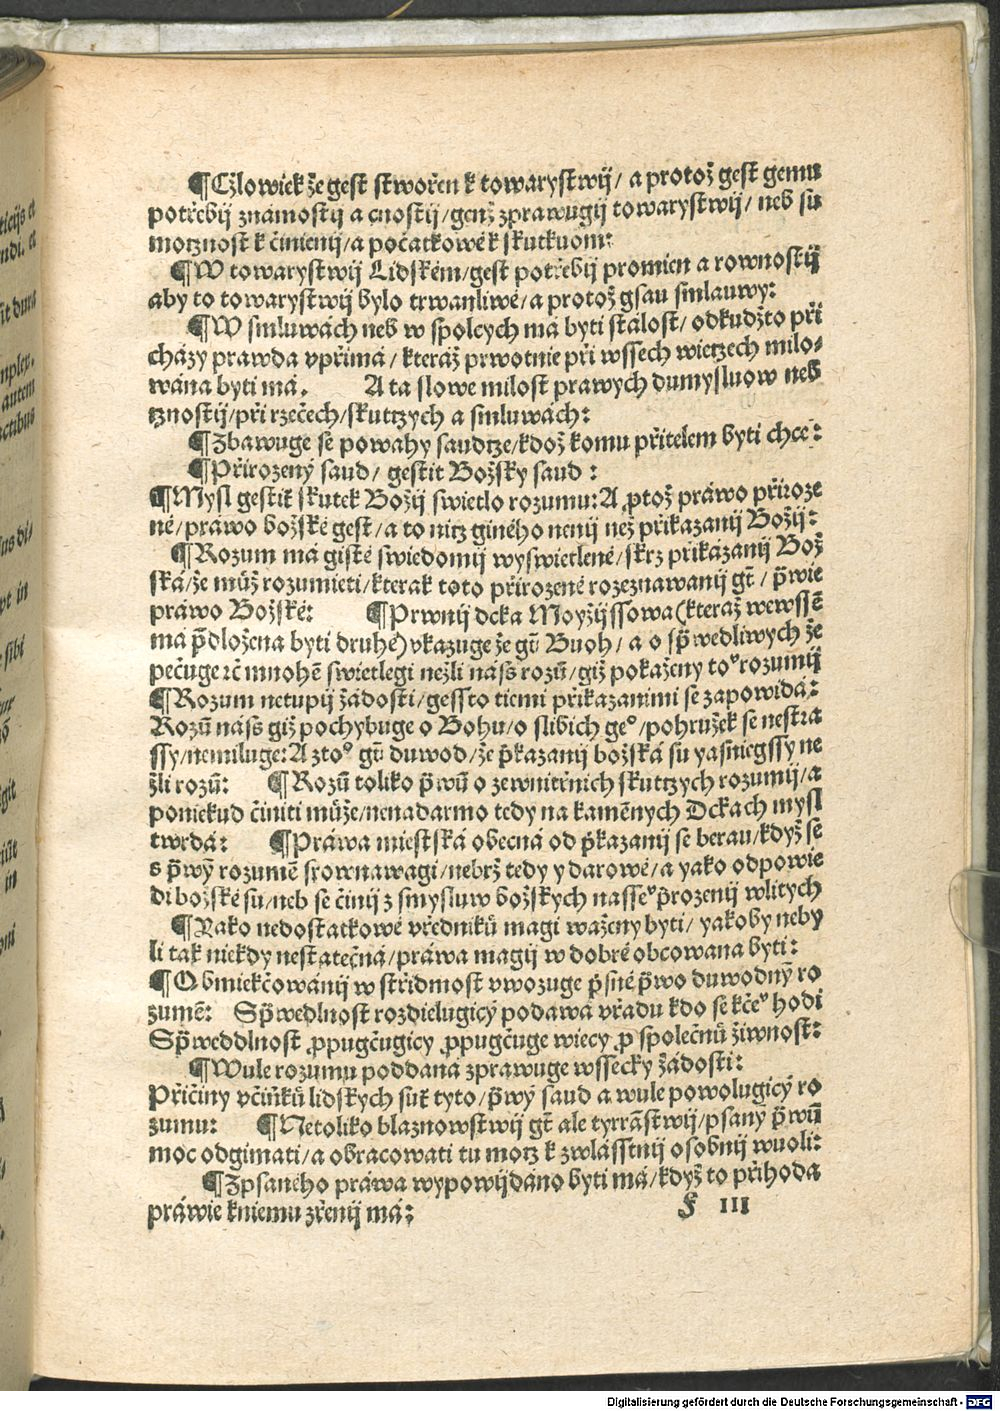 ¶Cżlowiek że gest stworen k towarystwij/ a protož gest gemu
potřebij známostij a cnostij/genž zprawugij towarystwij/ neb su
motznost k činienij/a počatkowé k skutkuom:
¶W towarystwij Lidském/gest potřebij promien a rownostij
aby to towarystwij bylo trwanliwé/a protož gsau smlauwy:
¶W smluwách neb w spolcych má byti stálost/ odkudžto při
cházy prawda vpřimá/ kteráž prwotnie při wssech wietzech milo-
wána byti má. A ta slowe milost prawych dumysluow neb
tznostij/při rzečech/skuttzych a smluwách:
¶Zbawuge se powahy saudtze/kdož komu přitelem byti chce:
¶Přirozený saud/ gestit Božský saud :
¶Mysl gestiť skutek Božij swietlo rozumu: A ꝓtož práwo přiroze
né/práwo božské gest/a to nitz giného nenij než přikázanij Božij:
¶Rozum má gisté swiedomij wyswietlené/skrz přikázanij Bož
ská/že můž rozumieti/kterak toto přirozené rozeznawanij gt̄/ p̄wie
práwo Božské: ¶Prwnij dcka Moyžijssowa (kteráž wewssē
má p̄dložena byti druhé) vkazuge že gt̄ Buoh/a o sp̄wedliwych že
pečuge ꝛč mnohē swietlegi nežli náss rozū/giž pokaženy toᵒ rozumij
¶Rozum netupij žádosti/gessto tiemi přikázanimi se zapowidá:
Rozū náss giž pochybuge o Bohu/o slibich geᵒ/pohružek se nestra
ssy/nemiluge: A ztoᵒ gt̄ duwod/že p̄kazanij božská su yasniegssy ne
žli rozū: ¶Rozū toliko p̄wū o zewnitřnich skuttzych rozumij/a
poniekud činiti může/nenadarmo tedy na kamēnych Dckach mysl
twrdá: ¶Práwa miestská obecná od p̄kazanij se berau/když se
s p̄wȳ rozumē srownawagi/nebrž tedy y darowé/a yako odpowie
di božské su/neb se činij z smysluw božských nasseᵒ p̄rozenij wlitych
¶Yako nedostatkowé vředniků magi waženy byti/ yakoby neby
li tak niekdy nestatečná/práwa magij w dobré obcowana byti:
¶Obmiekčowánij w střidmost vwozuge p̄sné p̄wo duwodnȳ ro
zumē: Sp̄wedlnost rozdielugicý podawá vřadu kdo se kčeᵒ hodi
Sp̄weddlnost ꝓpugčugicy ꝓpugčuge wiecy ꝓ společnů žiwnost:
¶Wule rozumu poddaná zprawuge wssecky žádosti:
Přičiny včinků lidskych suť tyto/p̄wý saud a wule powolugicý ro
zumu: ¶Netoliko blaznowstwij gt̄ ale tyrrāstwij/psany p̄wū
moc odgimati/a obracowati tu motz k zwlásstnij osobnij wuoli:
¶Zpsaného práwa wypowijdáno byti má/když to přihoda
práwie kniemu zřenij má:
F III
Digitalisierung gefördert durch die Deutsche Forschungsgemeinschaft - DFG